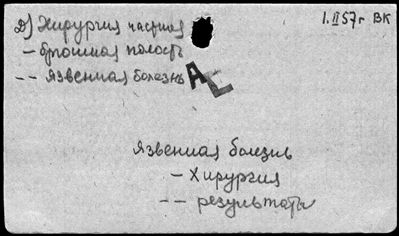 д) Хирургия частная
– брюшная полость
-- язвенная болезнь
1.II57г ВК
Язвенная болезнь
– Хирургия
-- результаты